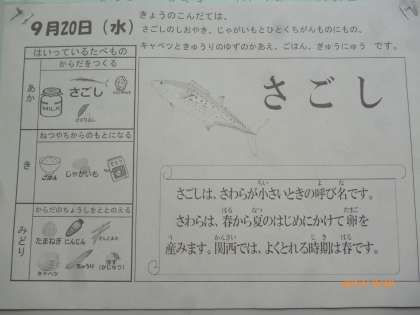 9月20日（水）
きょうのこんだては、
さごしのしおやき、じゃがいもとひとくちがんものにもの。
キャベツときゅうりのゆずのかあえ、ごはん、ぎゅうにゅう です。
はいっているたべもの
あか
からだをつくる
さごし
MILK
き
ねつやちからのもとになる
ごはん
じゃがいも
みどり
からだのちょうしをととのえる
たまねぎ
にんじん
キャベツ
きゅうり
ゆず
(かじゅう)
さごし
さごしは、さわらが小さいときの呼び名です。
さわらは、春から夏のはじめにかけて卵を
産みます。関西では、よくとれる時期は春です。